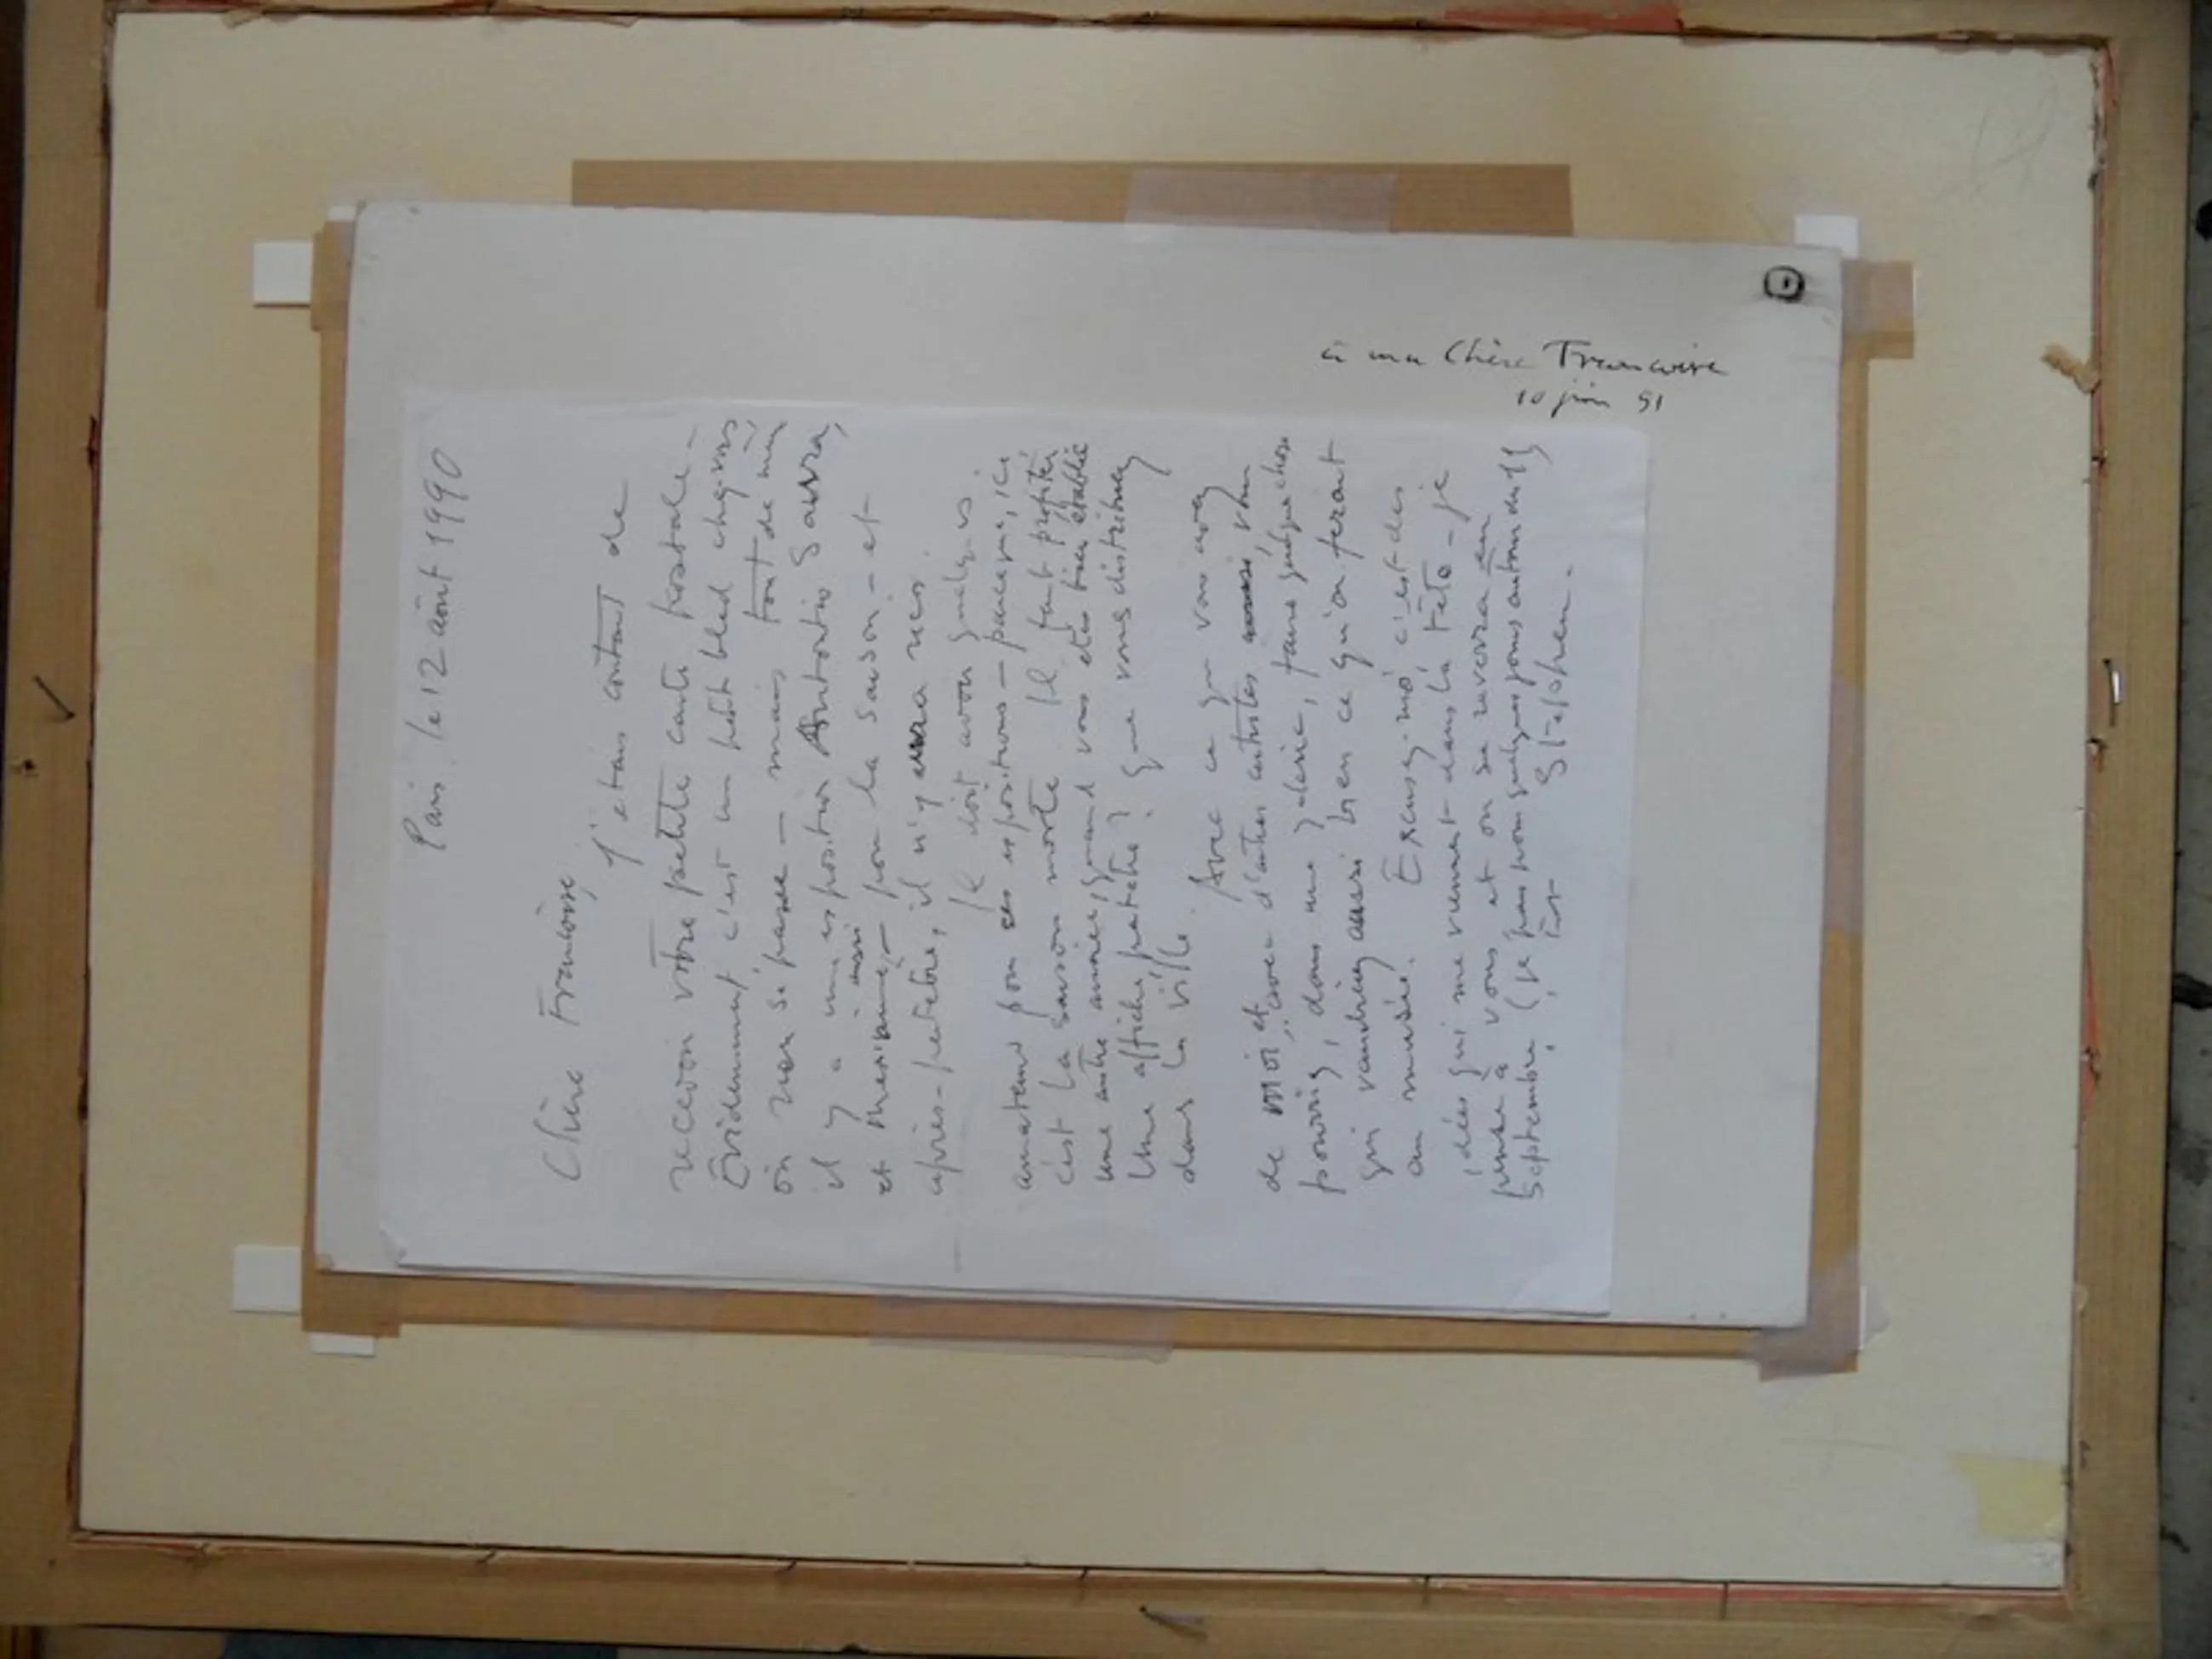 à ma Chère Francoise
10 juin 91
Paris, le 12 août 1990
Chère Francoise,
j'étais content de
recevoir votre petite carte postale -
Évidemment c'est un petit bled chez-vous
où rien se passe - mais tout de même
il y a une exposition Antonio Saura,
et aussi pour la saison - et
après - peut être, il n'y aura rien.
Il doit avoir quelques
amateurs pour ces expositions - parce que, ici
c'est la saison morte Il faut profiter
une autre année, quand vous êtes bien établie
Une affiche, peut être? que vous distribuez
dans la ville.
Avec ce que vous avez
de moi et, avec d'autres artistes, vous
pouvez, dans une galerie, faire quelque chose
qui vaudrez aussi bien ce qu'on ferait
au musée. Excusez-moi c'est des
idées qui me viennent dans la tête - je
pense à vous et on se reverra en
Septembre, (je pars pour quelques jours autour du 15)
Stephen.